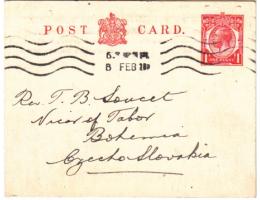 POST CARD.
8 FEB
Rev. T. B.
Vicar of Tabor
Bohemia
Czecho Slovakia